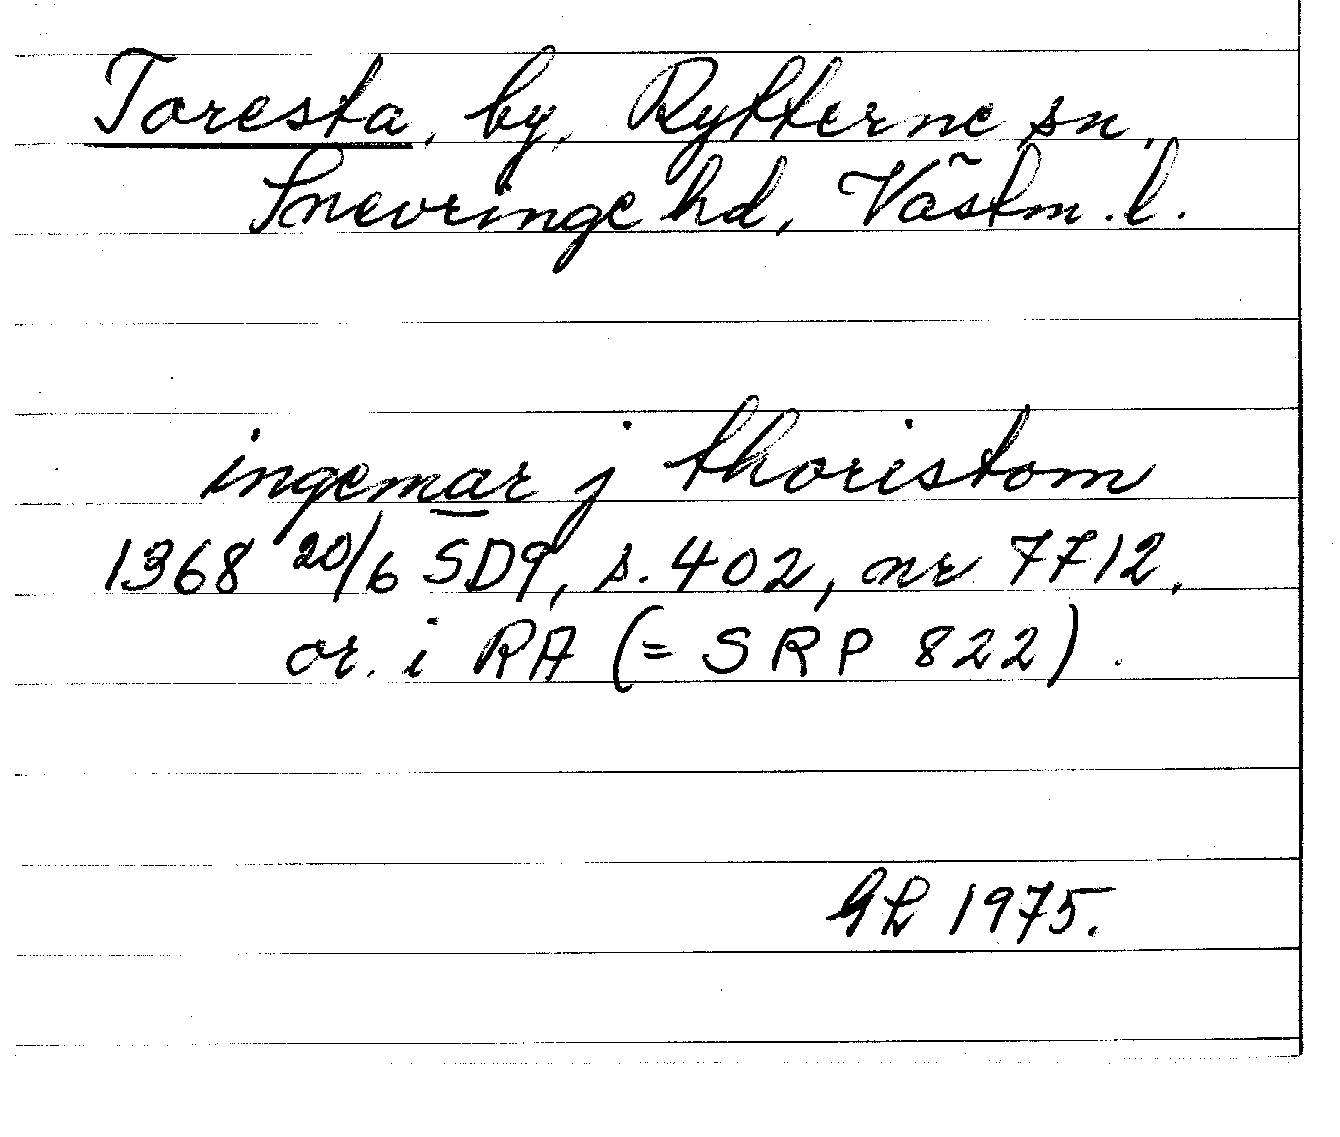 Toresta, by, Rytterne sn,
Snevringe hd, Västm. l.
ingemar j thoristom
1368 20/6 SD9, s. 402, nr 7712,
or. i RA (= SRP 822).
1975.